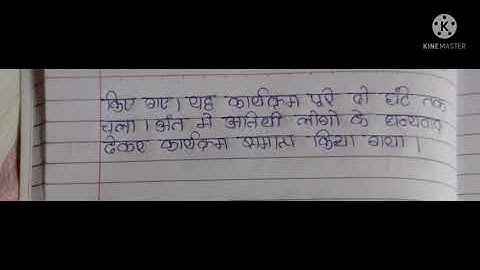 KINEMASTER
किए गए। यह कार्यक्रम पूरे दो घंटे तक
चला। अंत में अतिथी लोगो के धन्यवाद
देकर कार्यक्रम समाप्त किया गया।